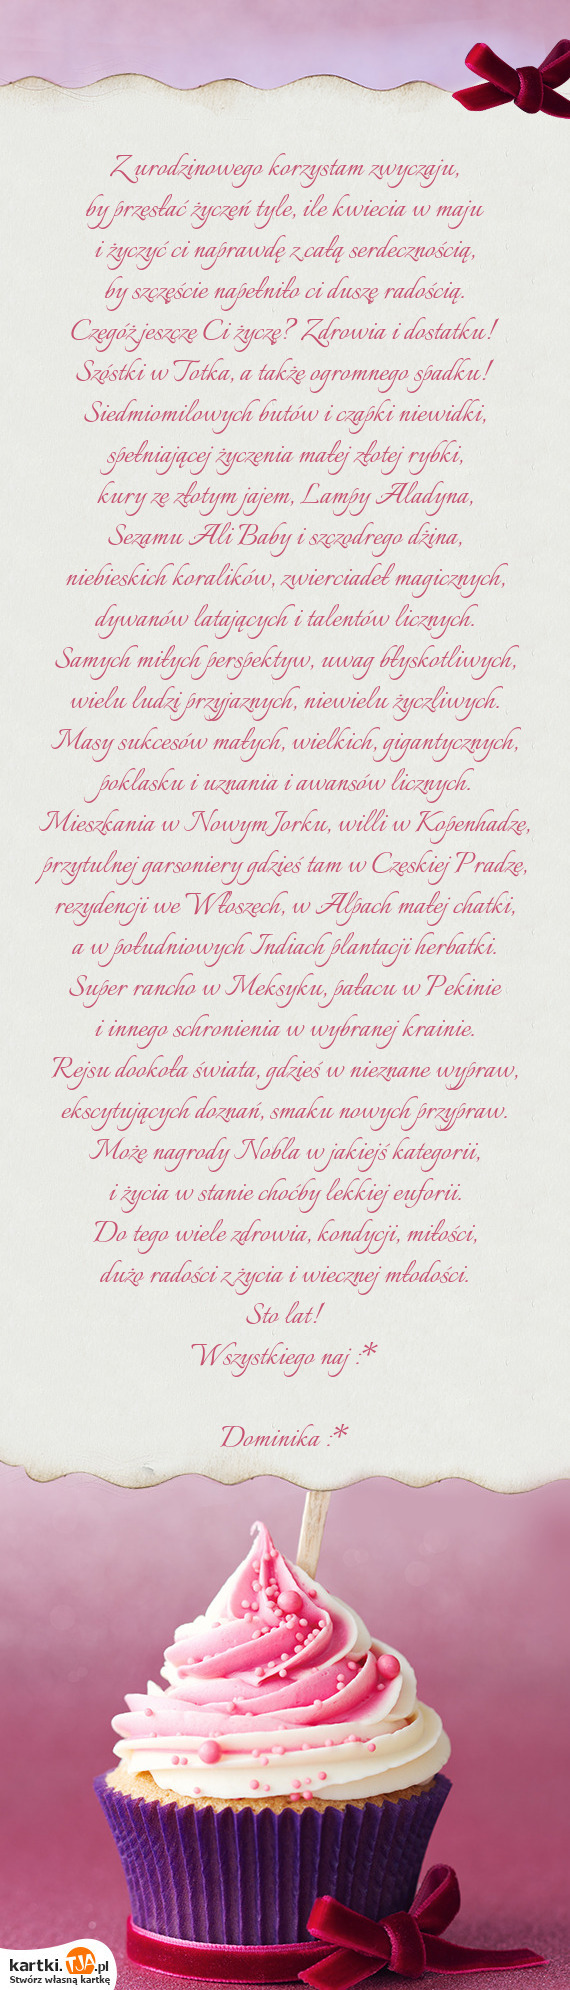 Z urodzinowego korzystam zwyczaju,
by przesłać życzeń tyle, ile kwiecia w maju
i życzyć ci naprawdę z całą serdecznością,
by szczęście napełniło ci duszę radością.
Czegóż jeszcze Ci życzę? Zdrowia i dostatku!
Szóstki w Totka, a także ogromnego spadku!
Siedmiomilowych butów i czapki niewidki,
spełniającej życzenia małej złotej rybki,
kury ze złotym jajem, Lampy Aladyna,
Sezamu Ali Baby i szczodrego dżina,
niebieskich koralików, zwierciadeł magicznych,
dywanów latających i talentów licznych.
Samych miłych perspektyw, uwag błyskotliwych,
wielu ludzi przyjaznych, niewielu życzliwych.
Masy sukcesów małych, wielkich, gigantycznych,
poklasku i uznania i awansów licznych.
Mieszkania w Nowym Jorku, willi w Kopenhadze,
przytulnej garsoniery gdzieś tam w Czeskiej Pradze,
rezydencji we Włoszech, w Alpach małej chatki,
a w południowych Indiach plantacji herbatki.
Super rancho w Meksyku, pałacu w Pekinie
i innego schronienia w wybranej krainie.
Rejsu dookoła świata, gdzieś w nieznane wypraw,
ekscytujących doznań, smaku nowych przypraw.
Może nagrody Nobla w jakiejś kategorii,
i życia w stanie choćby lekkiej euforii.
Do tego wiele zdrowia, kondycji, miłości,
dużo radości z życia i wiecznej młodości.
Sto lat!
Wszystkiego naj :*
Dominika :*
kartki.TJA.pl
Stwórz własną kartkę